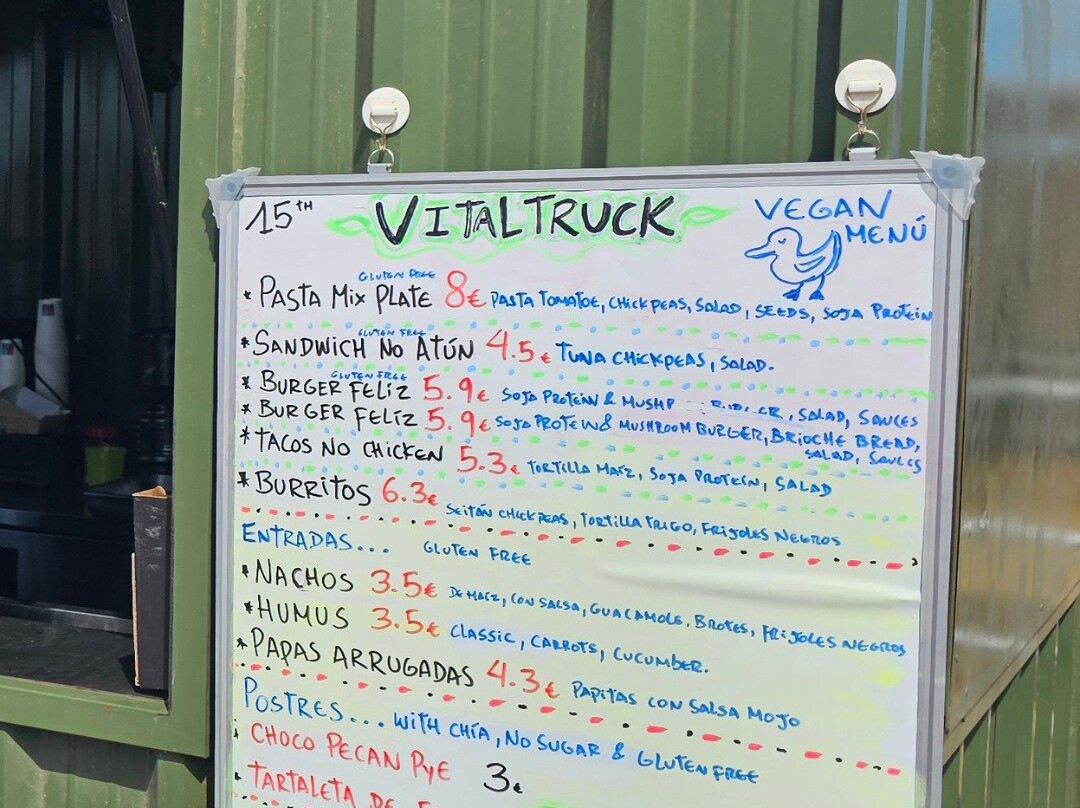 15TH VITALTRUCK VEGAN MENÚ
GLUTEN FREE
* PASTA MIX PLATE 8€ PASTA TOMATOE, CHICKPEAS, SALAD, SEEDS, SOJA PROTEIN
GLUTEN FREE
* SANDWICH NO ATÚN 4.5€ TUNA CHICKPEAS, SALAD.
GLUTEN FREE
* BURGER FELIZ 5.9€ SOJA PROTEIN & MUSH , SALAD, SAUCES
* BURGER FELIZ 5.9€ SOJA PROTEIN & MUSHROOM BURGER, BRIOCHE BREAD,
SALAD, SAUCES
* TACOS NO CHICKEN 5.3€ TORTILLA MAÍZ, SOJA PROTEIN, SALAD
* BURRITOS 6.3€ SEITÁN CHICKPEAS, TORTILLA TRIGO, FRIJOLES NEGROS
ENTRADAS... GLUTEN FREE
* NACHOS 3.5€ DE MAÍZ, CON SALSA, GUACAMOLE, BROTES, FRIJOLES NEGROS
* HUMUS 3.5€ CLASSIC, CARROTS, CUCUMBER.
* PAPAS ARRUGADAS 4.3€ PAPITAS CON SALSA MOJO
POSTRES... WITH CHÍA, NO SUGAR & GLUTEN FREE
* CHOCO PECAN PYE 3€
* TARTALETA DE